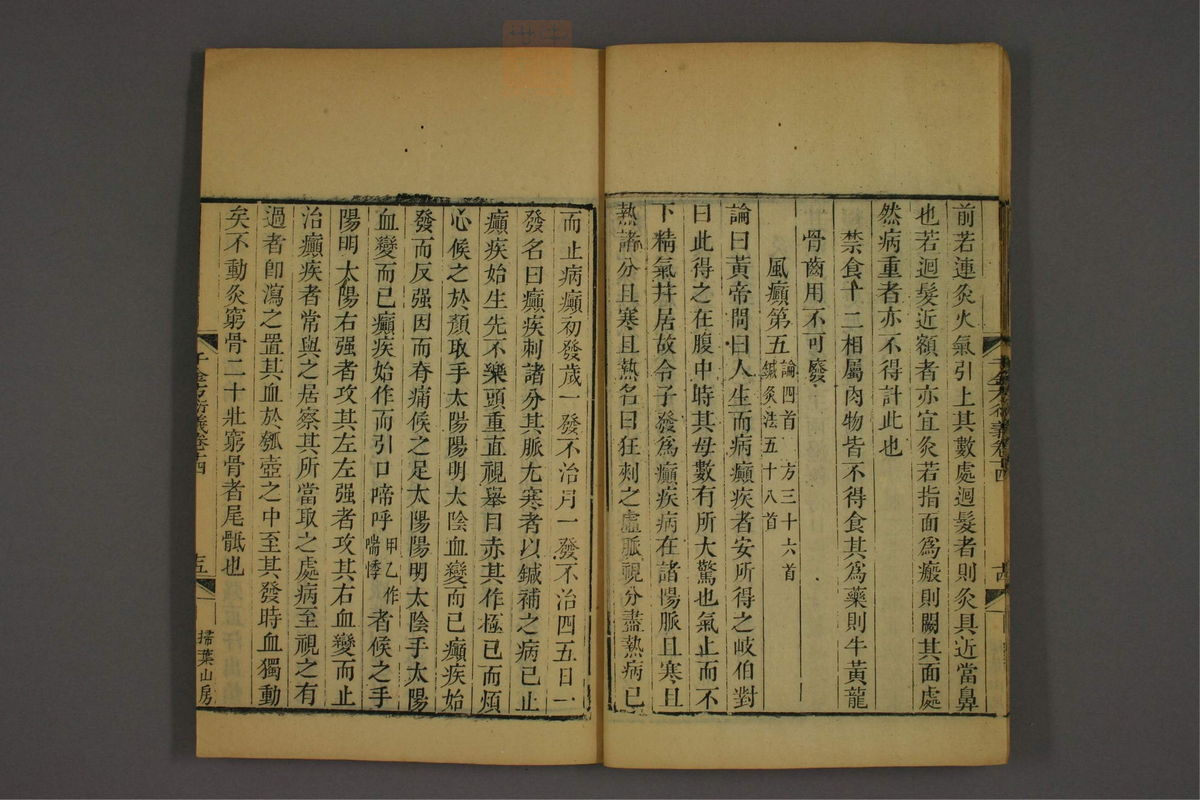 前若連灸火氣引上其數處迴髮者則灸其近當鼻
也若迴髮近額者亦宜灸若指面爲瘢則闕其面處
然病重者亦不得計此也
禁食十二相屬肉物皆不得食其爲藥則牛黃龍
骨齒用不可廢
風癲第五論四首 方三十六首 鍼灸法五十八首
論曰黃帝問曰人生而病癲疾者安所得之岐伯對
曰此得之在腹中時其母數有所大驚也氣止而不
下精氣并居故令子發爲癲疾病在諸陽脈且寒且
熱諸分且寒且熱名曰狂刺之虛脈視分盡熱病已
而止病癲初發歲一發不治月一發不治四五日一
發名曰癲疾刺諸分其脈尢寒者以鍼補之病已止
癲疾始生先不樂頭重直視舉目赤其作極已而煩
心候之於顏取手太陽陽明太陰血變而已癲疾始
發而反强因而脊痛候之足太陽陽明太陰手太陽
血變而已癲疾始作而引口啼呼甲乙作喘悸者候之手
陽明太陽右强者攻其左左强者攻其右血變而止
治癲疾者常與之居察其所當取之處病至視之有
過者卽瀉之置其血於瓠壺之中至其發時血獨動
矣不動灸窮骨二十壯窮骨者尾骶也
千金方衍義卷十四
五
掃葉山房